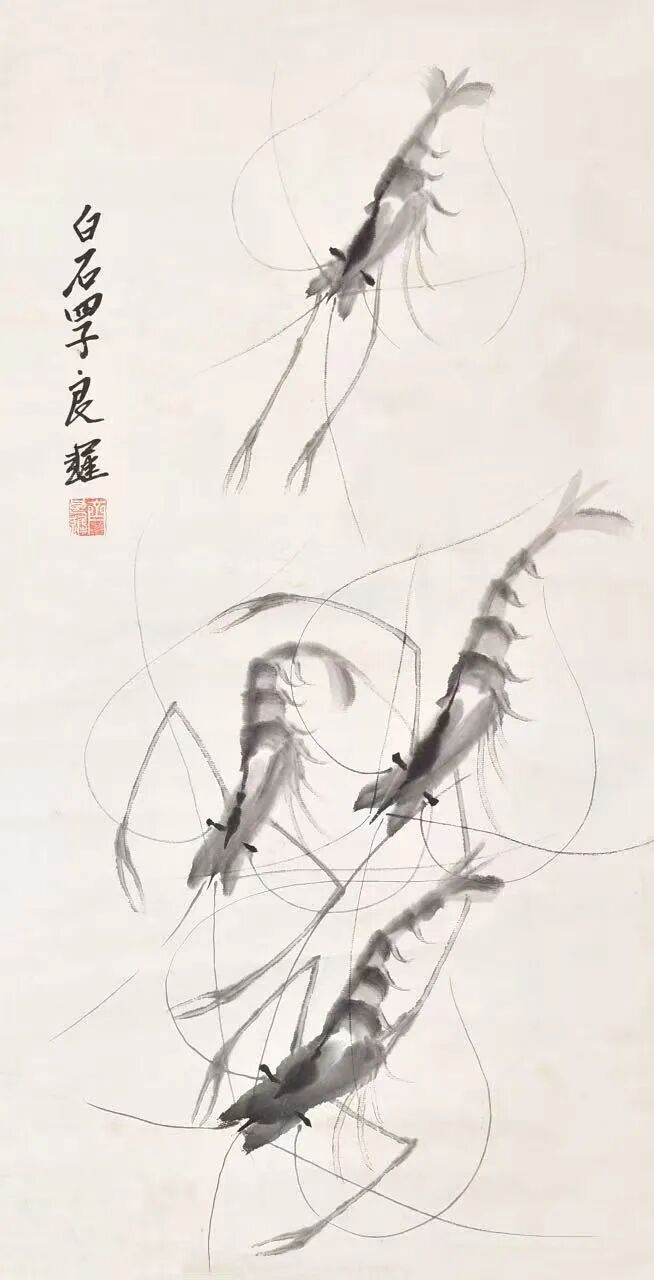 白石四子良遲